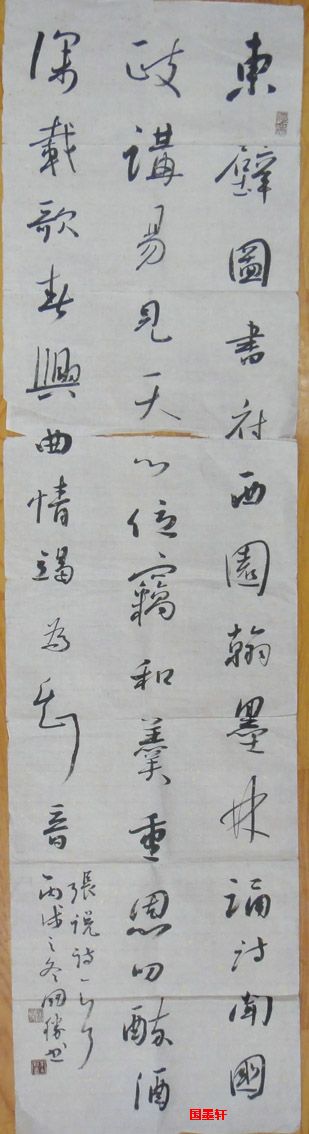 東壁圖書府西園翰墨林誦詩聞國
政講易見天心位竊和羹重恩叨醉酒
深載歌春興曲情竭為知音
張説詩一首
丙戌之冬勝书
国墨轩